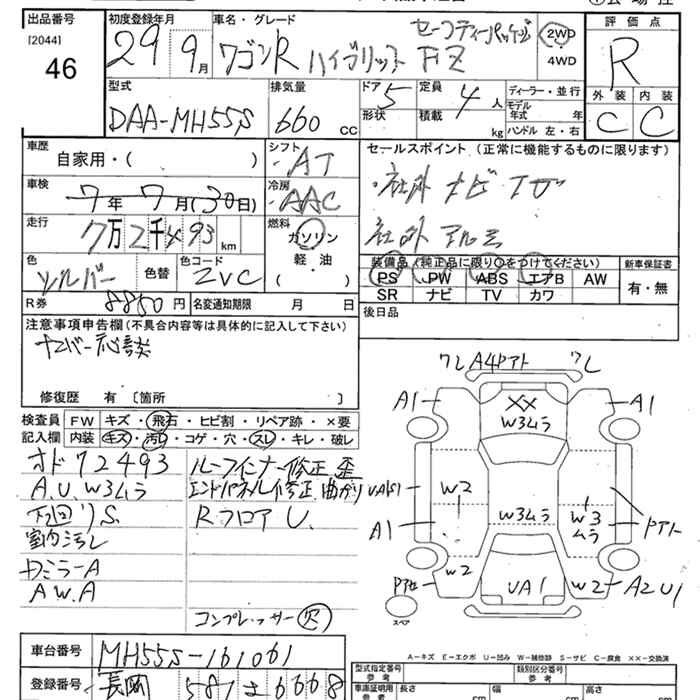 出品番号
[2044]
46
初度登録年月
29 9月
車名・グレード
ワゴンR ハイブリット FZ
セーフティーパッケージ
2WD
4WD
評価点
R
外装 内装
C C
型式
DAA-MH55S
排気量
660 CC
ドア 5
形状
定員 4 人
積載 kg
ディーラー・並行
モデル
年式 年
ハンドル 左・右
車歴
自家用・( )
シフト
AT
冷房
AAC
車検
7年7月(30日)
走行
7万2千493km
燃料
ガソリン
軽油
( )
色
シルバー
色替
色コード
ZVC
R券 8850円
名変通知期限 月 日
セールスポイント(正常に機能するものに限ります)
・社外ナビTV
社外アルミ
装備品(純正品に限り○をつけてください)
PS PW ABS エアB AW
SR ナビ TV カワ
新車保証書
有・無
後日品
注意事項申告欄(不具合内容等は具体的に記入して下さい)
ナンバー応談
修復歴 有〔箇所 〕
検査員 FW キズ・飛石・ヒビ割・リペア跡・×要
記入欄 内装 キズ・汚れ・コゲ・穴・スレ・キレ・破レ
オド72493
A.U.W3ムラ
下回りS.
室内汚レ
DミラーA
AW.A
ルーフインナー修正歪
エンドパネル修正曲がり
RフロアU.
コンプレッサー欠
ワレ A4Pアト ワレ
A1 A1
XX
W3ムラ
UA1S1
W2
A1
W3ムラ
W3ムラ
Pアト
W2
UA1
W2
A2U1
スペア
A-キズ E-エクボ U-凹み W-補修跡 S-サビ C-腐食 XX-交換済
車台番号 MH55S-161061
登録番号 長岡 581 さ 6668
型式指定番号
参考
類別区分番号
参考
車庫証明用
参考
長さ cm
幅 cm
高さ cm